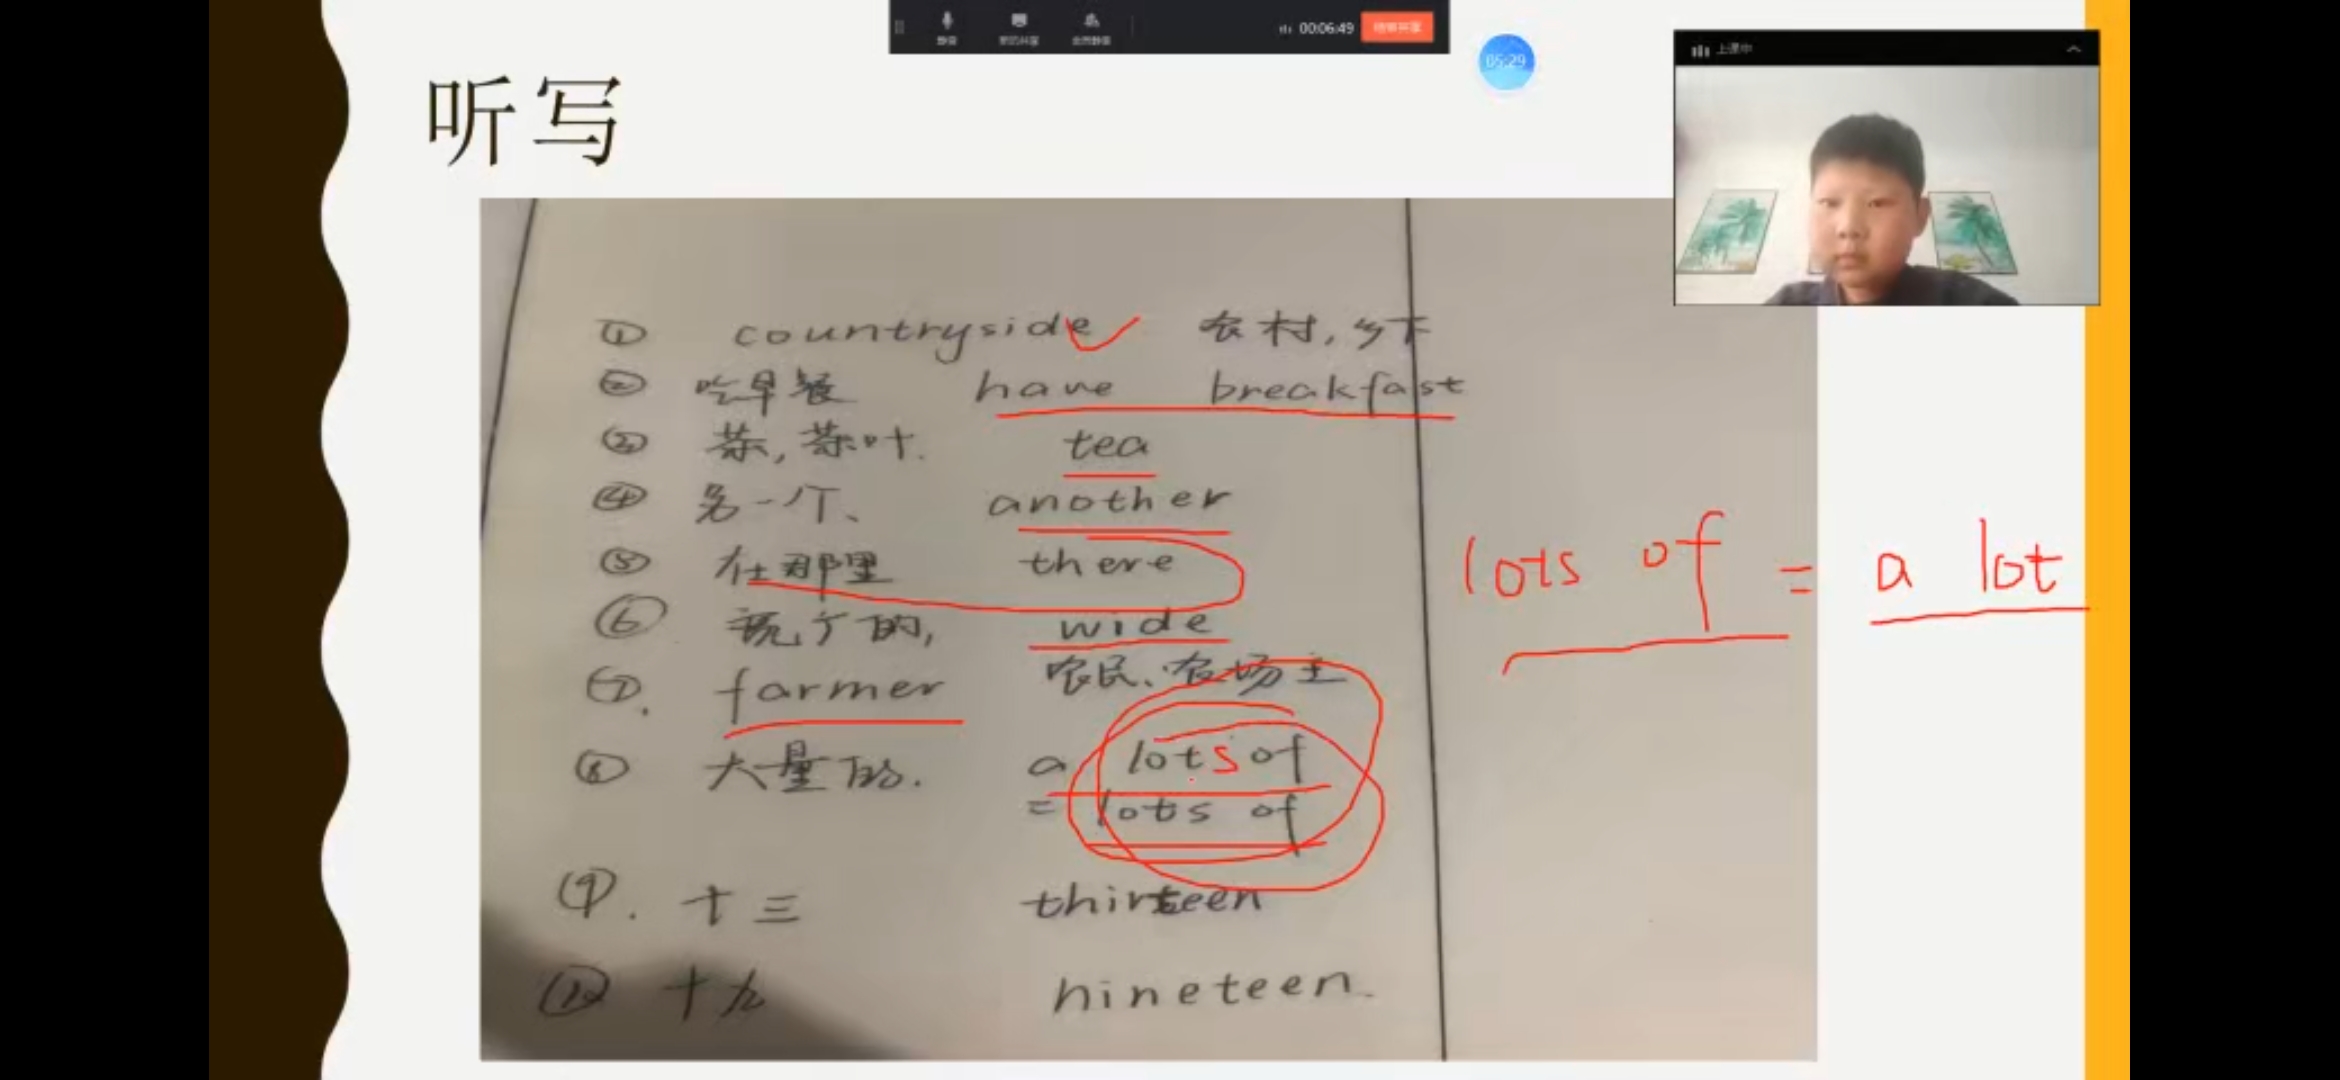 00:06:49 结束共享
05:29
上课中
听写
① countryside 农村,乡下
② 吃早餐 have breakfast
③ 茶,茶叶. tea
④ 另一个、 another
⑤ 在那里 there
⑥ 宽广的, wide
⑦. farmer 农民、农场主
⑧ 大量的. a lots of
= lots of
lots of = a lot
⑨. 十三 thirteen
⑩ 十九 nineteen.